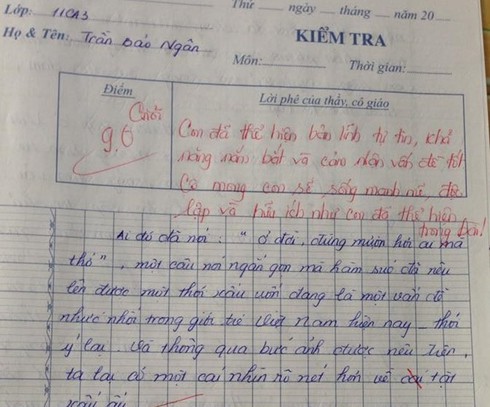 Thứ ____ ngày ___ tháng ___ năm 20 ___
Lớp: 11CA3
Họ & Tên: Trần Bảo Ngân
KIỂM TRA
Môn: Thời gian:
Điểm
Lời phê của thầy, cô giáo
9,0
Con đã thể hiện bản lĩnh tự tin, khả
năng nắm bắt và cảm nhận vấn đề tốt
Cô mong con sẽ sống mạnh mẽ, độc
lập và hữu ích như con đã thể hiện
trong bài!
Ai đó đã nói: "ở đời, đừng mượn hơi ai mà
thở", một câu nói ngắn gọn mà hàm súc đã nêu
lên được một thói xấu vốn đang là một vấn đề
nhức nhối trong giới trẻ Việt Nam hiện nay - thói
ỷ lại. Và thông qua bức ảnh được nêu trên,
ta lại có một cái nhìn rõ nét hơn về tật
xấu ấy